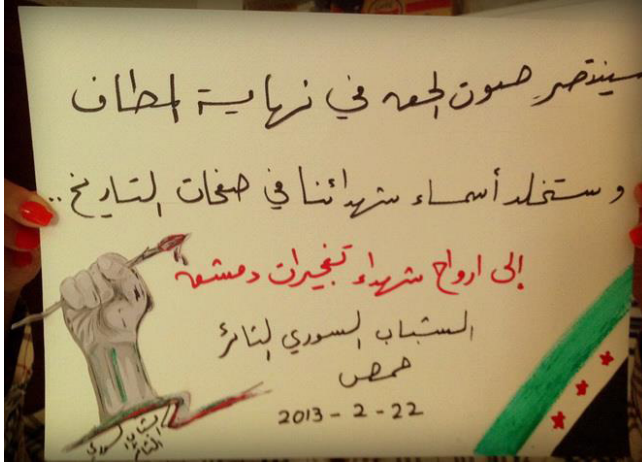 سينتصر صوت الحق في نهاية المطاف
وستخلد أسماء شهدائنا في صفحات التاريخ..
إلى ارواح شهداء تفجيرات دمشق
الشباب السوري الثائر
حمص
2013 - 2 - 22
الشباب السوري
الثائر